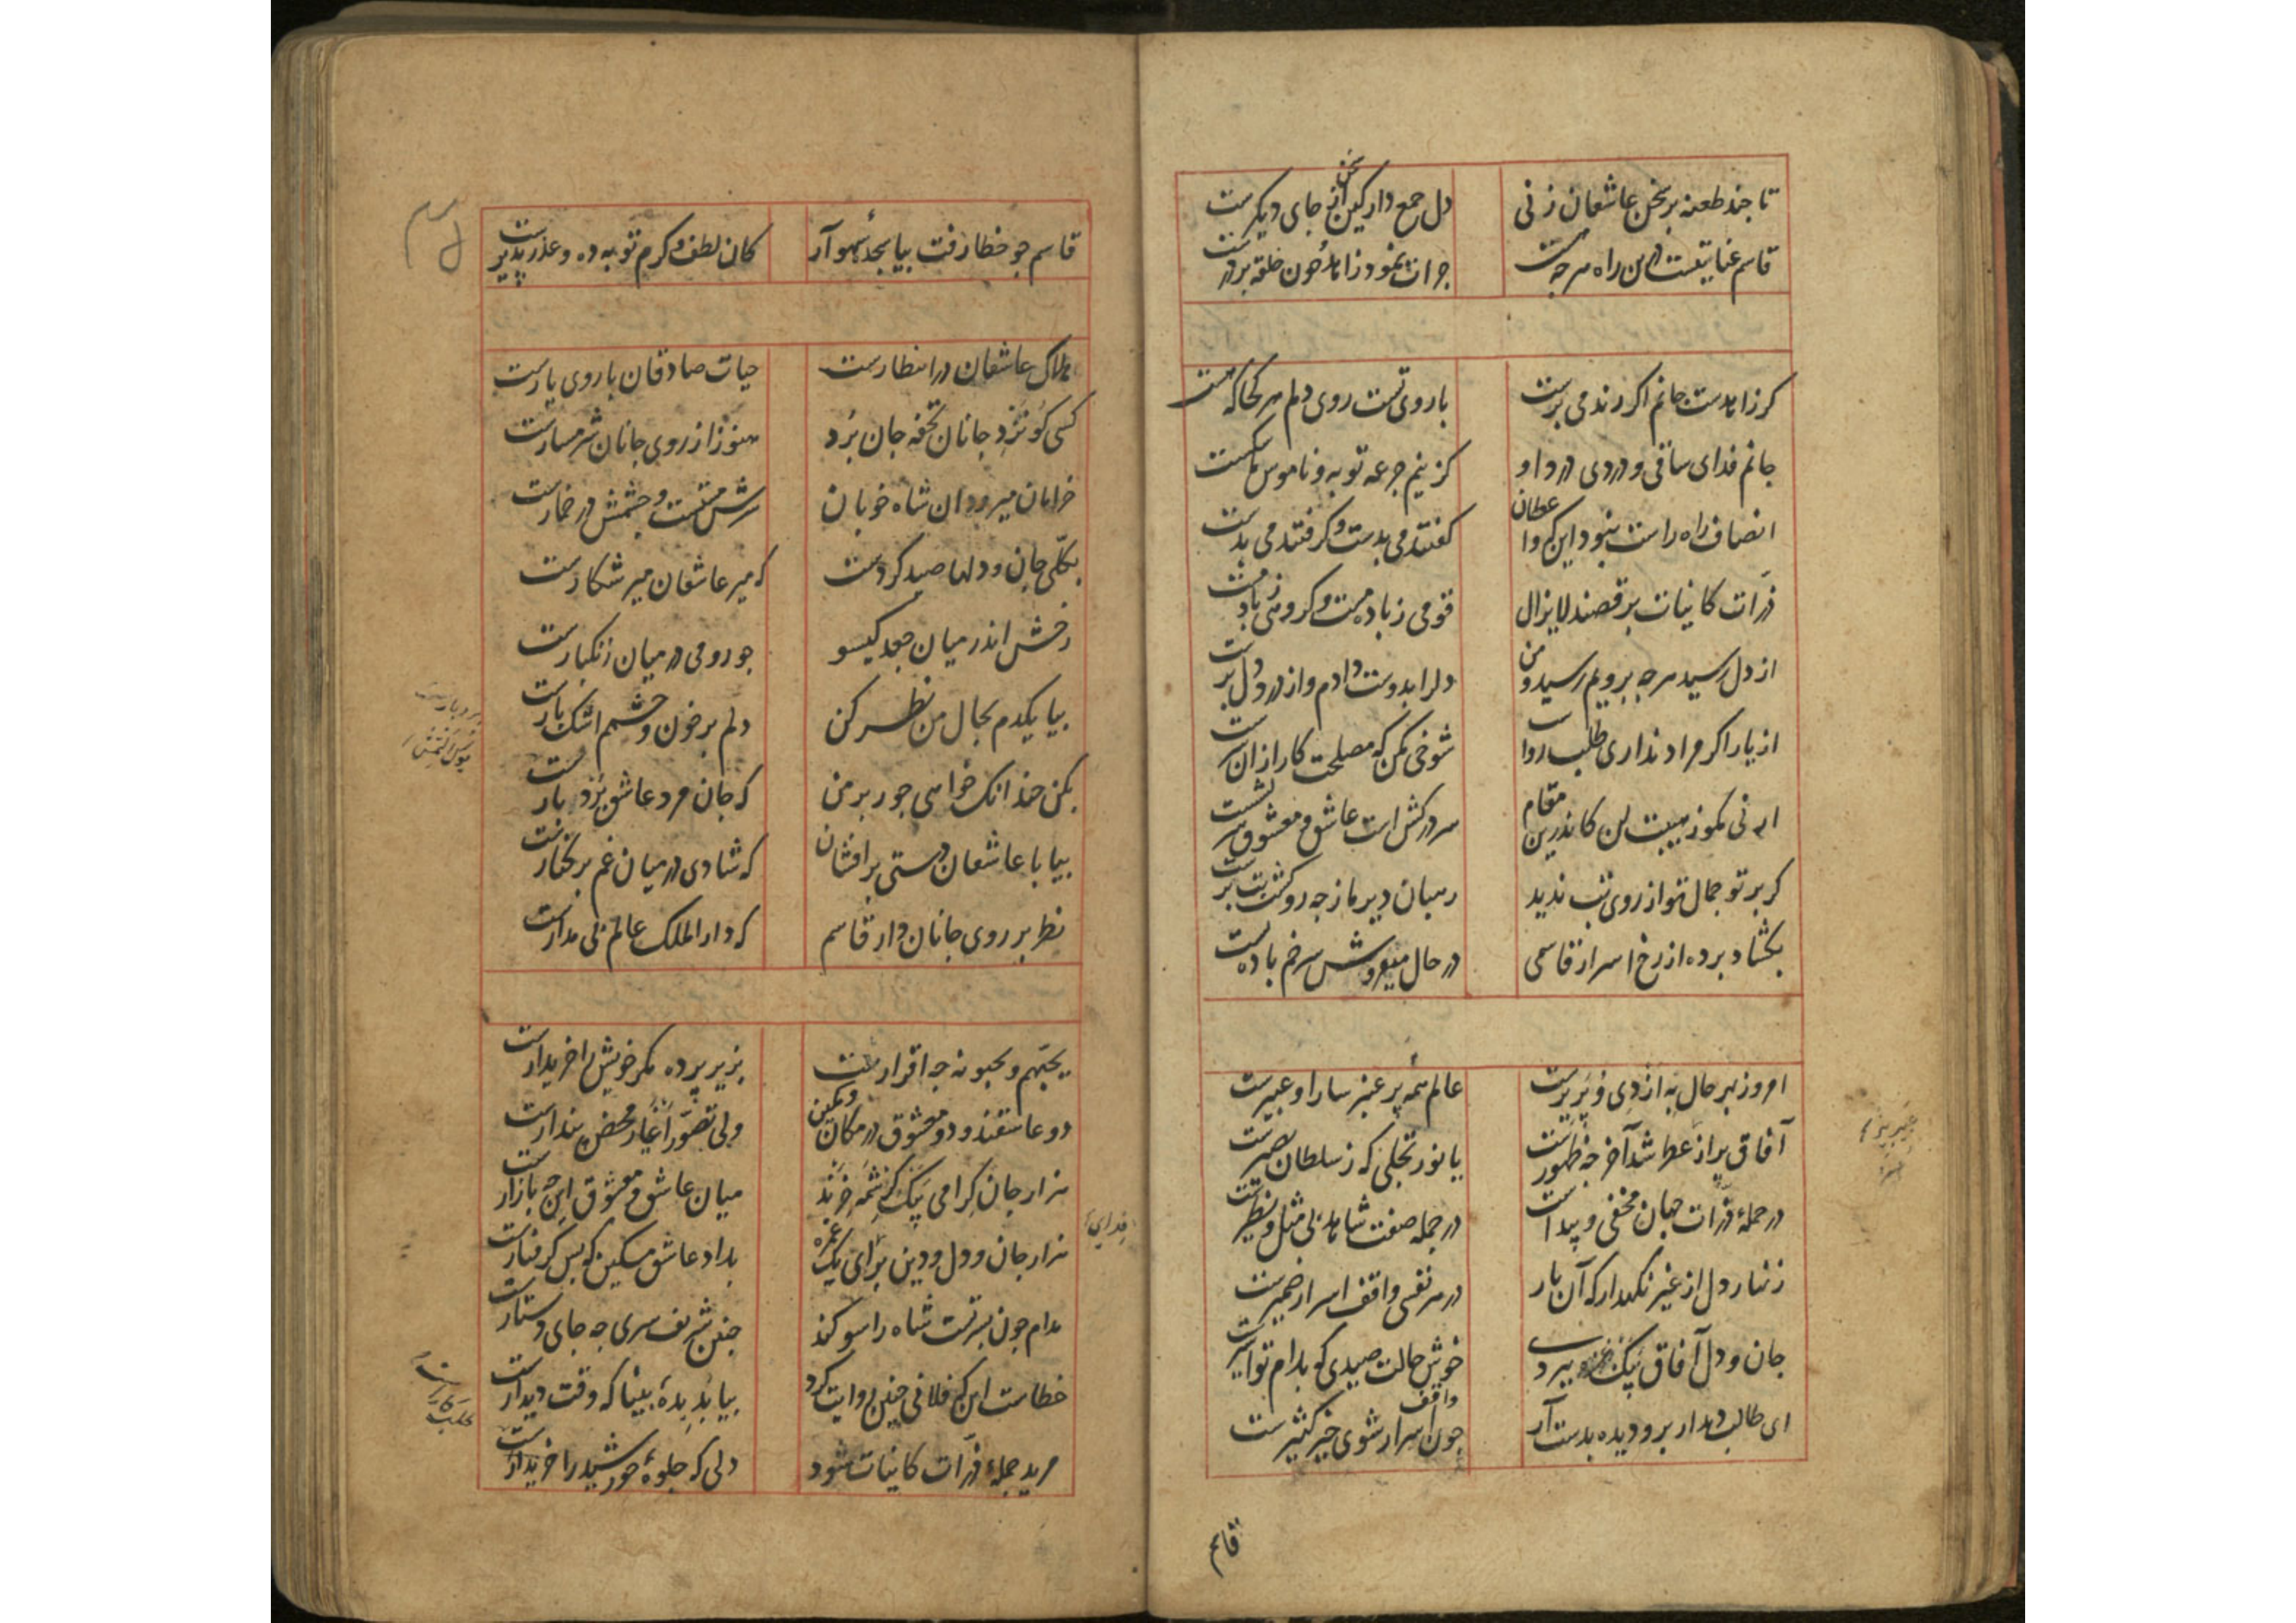 تا جند طعنه بر سخن عاشقان زنی
دل جمع دار کین سخن از جای دیکرست
قاسم عنایتست درین راه هرجه هست
جرات نمود زاهد و جون حلقه بر درست
کر زاهدست جانم اکر رند می برست
با روی تست روی دلم هر کجا که هست
جانم فدای ساقی و دردی درد او
کز نیم جرعه توبه و ناموس ما شکست
انصاف راه راست نبود این که واعظان
کفتند می بدست و کرفتند می بدست
ذرات کاینات برقصند لایزال
قومی ز باده مست و کروهی ز باد مست
از دل رسید هرجه برویم رسید و من
دل را بدوست دادم و از درد دل برست
از یار اکر مراد نداری طلب رواست
شوخی مکن که مصلحت کار ازان برست
ارنی مکو ز هیبت لن کاندرین مقام
سر در کش است عاشق و معشوق سر
کر برتو جمال تو از روی بت ندید
رهبان دیر ما ز جه رو کشت بت برست
بکشاد برده از رخ اسرار قاسمی
در حال میفروش سر خم باده بست
امروز بهر حال به از دی و پریرست
عالم همه پر عنبر سارا و عبیرست
آفاق پر از عطر شد آخر جه ظهورست
یا نور تجلی که ز سلطان بصیرست
در جملهٔ ذرات جهان مخفی و پیداست
در جمله صفت شاهد بی مثل و نظیرست
زنهار دل از غیر نکهدار که آن یار
در هر نفسی واقف اسرار ضمیرست
جان و دل آفاق بیک غمزه ببردست
خوش حالت صیدی که بدام تو اسیرست
ای طالب دیدار برو دیده بدست آر
جون واقف اسرار شوی خیر کثیرست
قاسم
قاسم جو خطا رفت بیا سجدهٔ سهو آر
کان لطف و کرم توبه ده و عذر پذیرست
هلاک عاشقان در انتظارست
حیات صادقان با روی یارست
کسی کو نزد جانان تحفه جان برد
هنوز از روی جانان شرمسارست
خرامان میرود ان شاه خوبان
سرش مستست و جشمش در خمارست
بکلی جان و دلها صید کردست
که میر عاشقان میر شکارست
رخش اندر میان جعد کیسو
جو رومی در میان زنکبارست
بیا یکدم بحال من نظر کن
دلم بر خون و جشمم اشک بارست
بکن جندانک خواهی جور بر من
که جان مرد عاشق بردبارست
بیا با عاشقان دستی برافشان
که شادی در میان غم برکنارست
نظر بر روی جانان دار قاسم
که دار الملک عالم بی مدارست
یحبهم و یحبونه جه اقرارست
بزیر پرده مکر خویش را خریدارست
دو عاشقند و دو معشوق در مکان و مکین
ولی تصور اغیار محض پندارست
هزار جان کرامی بیک کرشمه خرند
میان عاشق و معشوق این جه بازارست
هزار جان و دل و دین برای یک غمزه
بداد عاشق مسکین که بس کرفتارست
مدام جون بسرت شاه را سوکند
جنین شریف سری جه جای دستارست
خطاست این که فلانی جنین روایت کرد
بیا بدیدهٔ بینا که وقت دیدارست
مرید جملهٔ ذرات کاینات شود
دلی که جلوهٔ خورشید را خریدارست